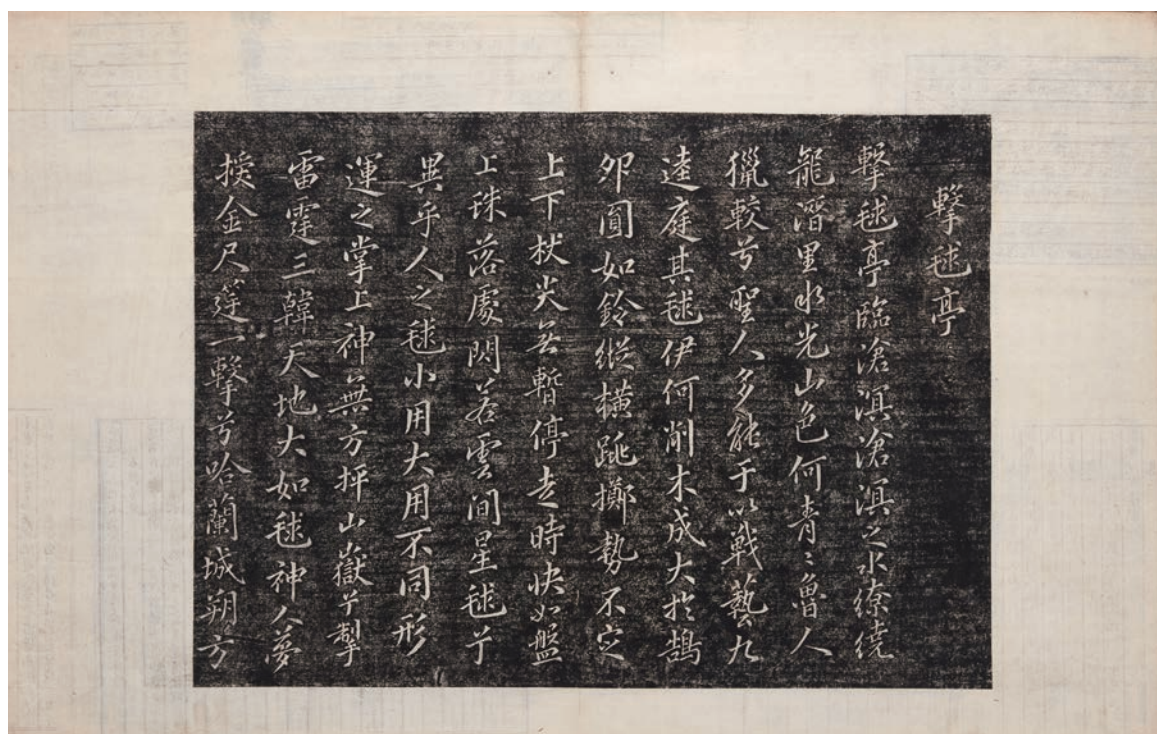 擊毬亭
擊毬亭臨滄溟滄溟之水繚繞
龍潛里水光山色何青〻魯人
獵較兮聖人多能于以戰藝九
逵庭其毬伊何削木成大於鵠
卵圓如鈴縱橫跳擲勢不定
上下杖尖無暫停走時快如盤
上珠落處閃若雲間星毬乎
異乎人之毬小用大用不同形
運之掌上神無方抨山嶽兮掣
雷霆三韓天地大如毬神人夢
授金尺莛一擊兮哈蘭城朔方